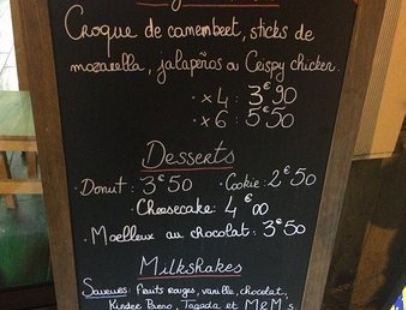 Croque de camembert, sticks de
mozarella, jalapeños ou Crispy chicken.
· x 4 : 3€90
· x 6 : 5€50
Desserts
· Donut : 3€50 · Cookie : 2€50
Cheesecake : 4€00
· Moelleux au chocolat : 3€50
Milkshakes
Saveurs : fruits rouges, vanille, chocolat,
Kinder Bueno, Tagada et M&M's